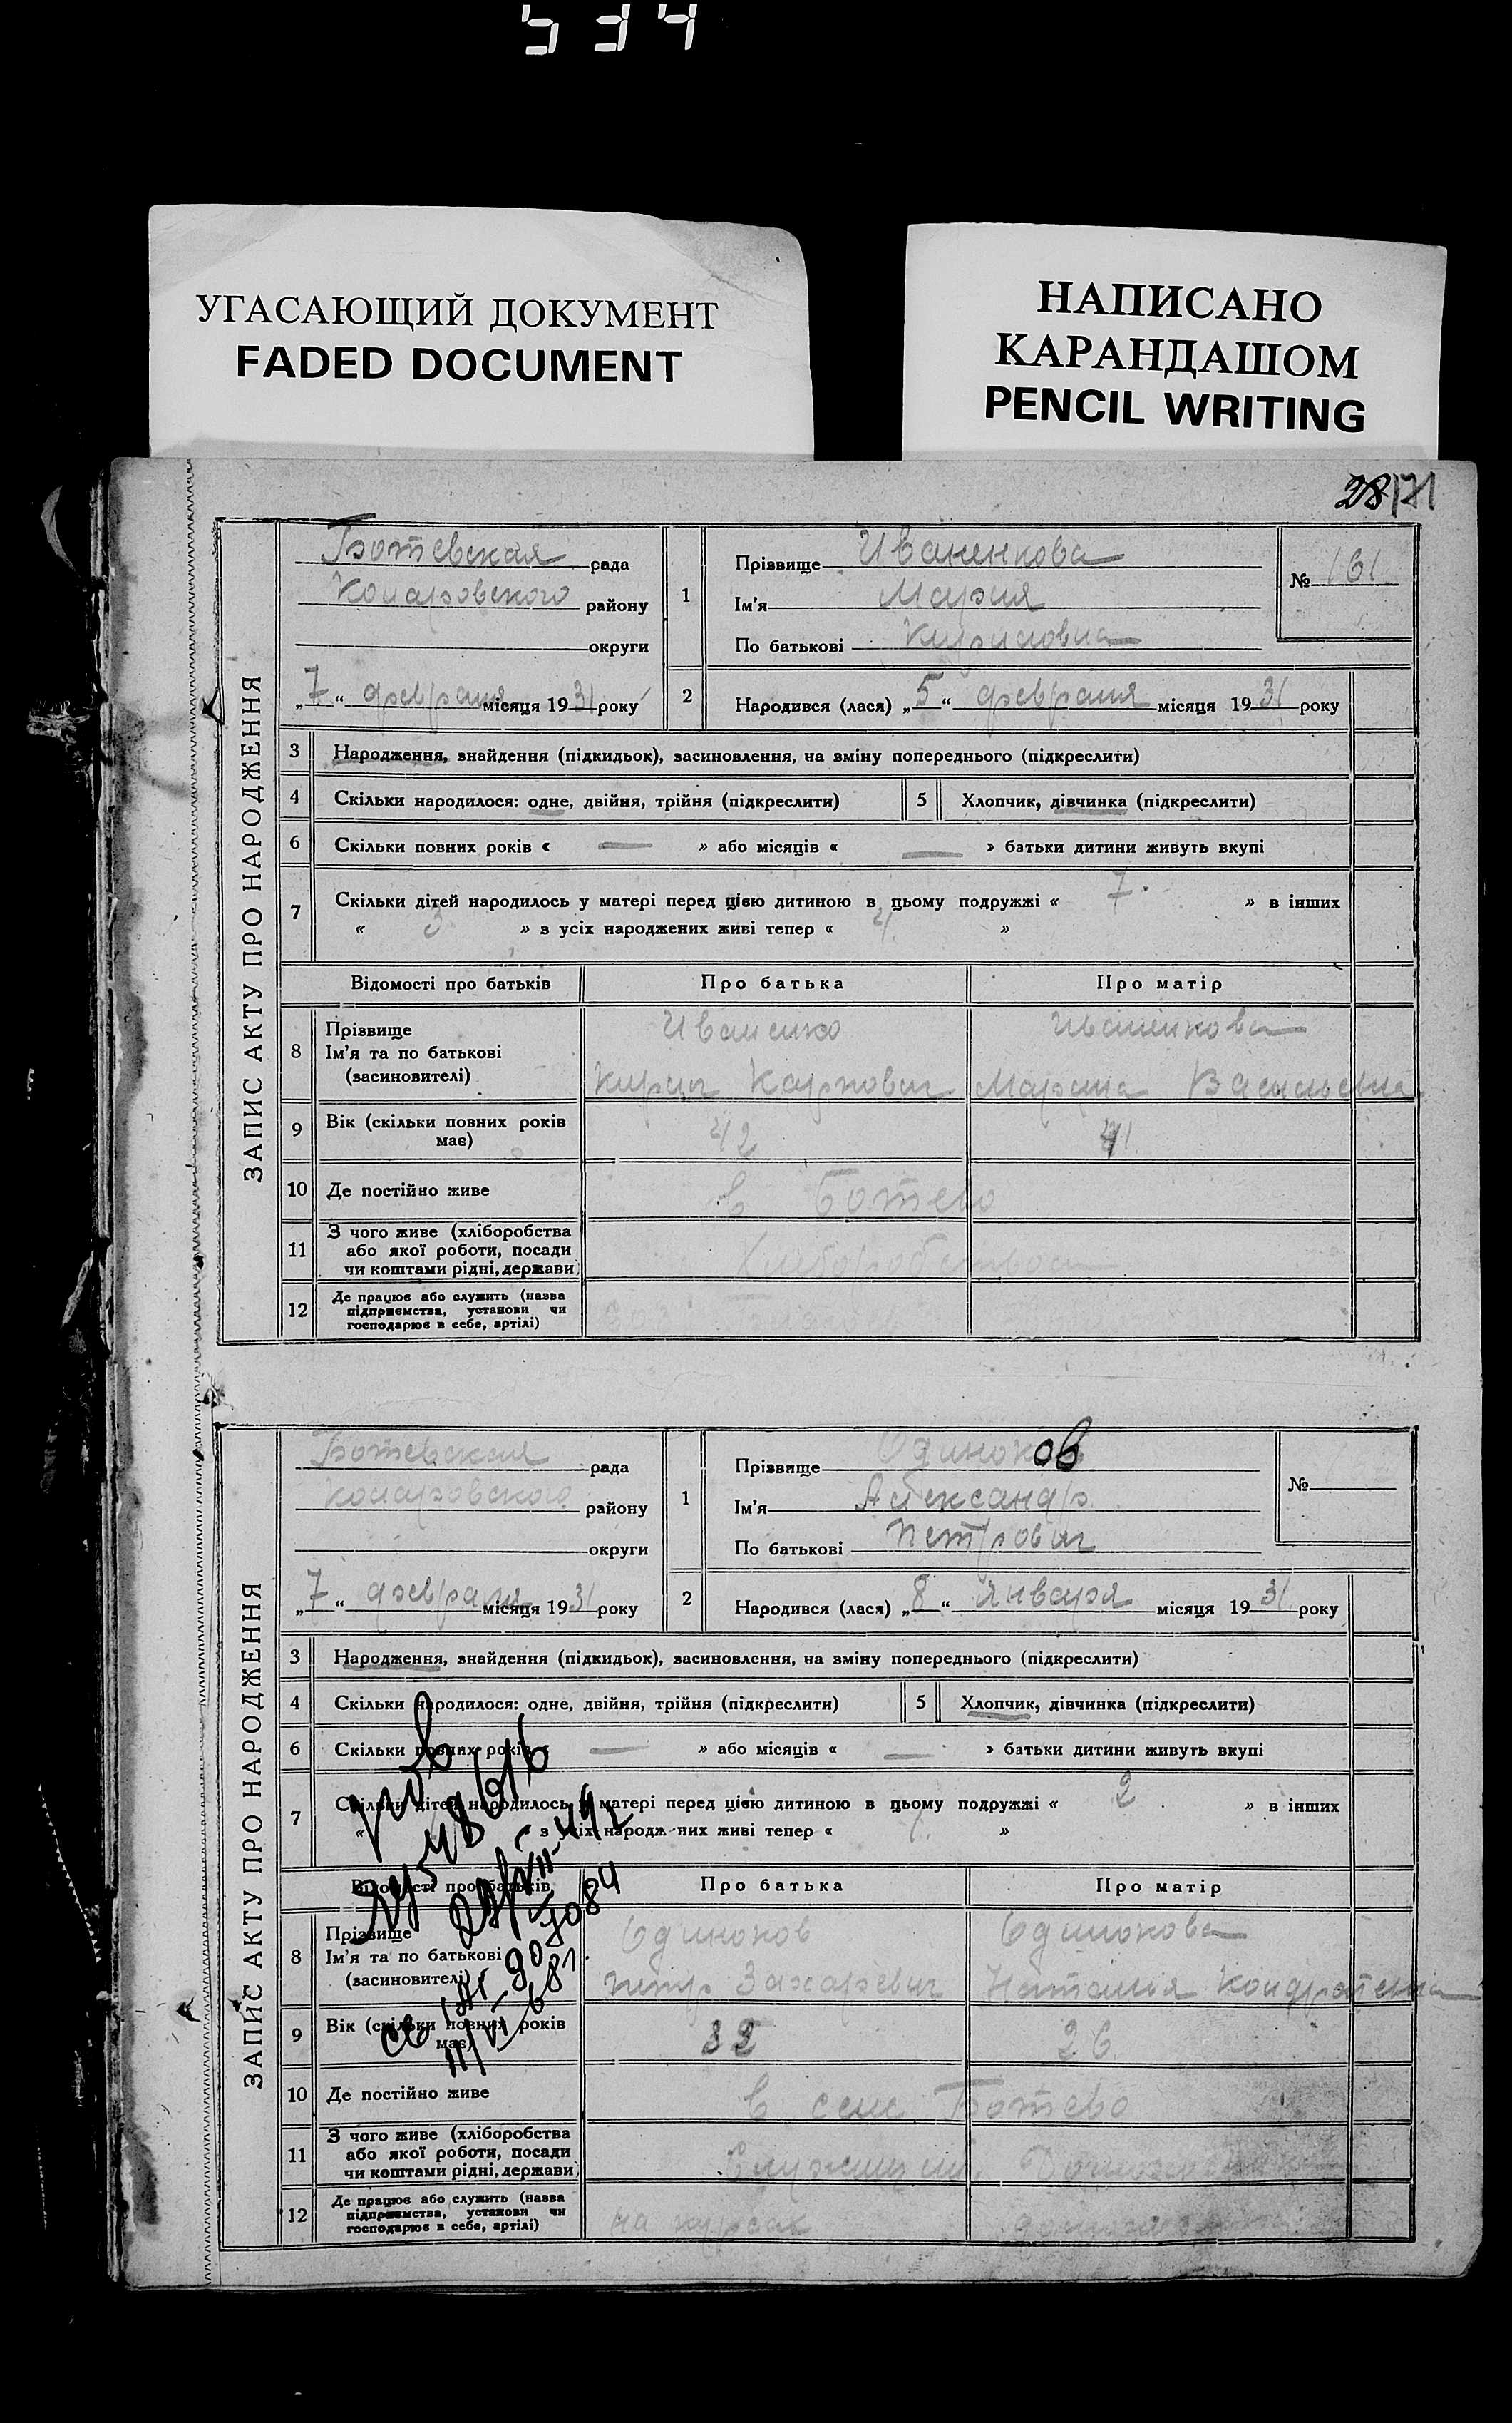 534
УГАСАЮЩИЙ ДОКУМЕНТ
FADED DOCUMENT
НАПИСАНО
КАРАНДАШОМ
PENCIL WRITING
28 171
ЗАПИС АКТУ ПРО НАРОДЖЕННЯ
Ботевская рада
Коларовского району
округи
„7“ февраля місяця 1931 року
1 Прізвище Иваненкова
Ім'я Мария
По батькові Кириловна
№ 161
2 Народився (лася) „5“ февраля місяця 1931 року
3 Народження, знайдення (підкидьок), засиновлення, на зміну попереднього (підкреслити)
4 Скільки народилося: одне, двійня, трійня (підкреслити) 5 Хлопчик, дівчинка (підкреслити)
6 Скільки повних років « — » або місяців « — » батьки дитини живуть вкупі
7 Скільки дітей народилось у матері перед цією дитиною в цьому подружжі « 7. » в інших
« 3 » з усіх народжених живі тепер « 4 »
Відомості про батьків Про батька Про матір
8 Прізвище Иваненко Иваненкова
Ім'я та по батькові
(засиновителі) Кирил Карпович Марина Васильевна
9 Вік (скільки повних років має) 42 41
10 Де постійно живе в Ботево
11 З чого живе (хліборобства
або якої роботи, посади
чи коштами рідні, держави) Хлеборобство
12 Де працює або служить (назва
підприємства, установи чи
господарює в себе, артілі)
ЗАПИС АКТУ ПРО НАРОДЖЕННЯ
Ботевская рада
Коларовского району
округи
„7“ февраля місяця 1931 року
1 Прізвище Одиноков
Ім'я Александр
По батькові Петрович
№
2 Народився (лася) „8“ января місяця 1931 року
3 Народження, знайдення (підкидьок), засиновлення, на зміну попереднього (підкреслити)
4 Скільки народилося: одне, двійня, трійня (підкреслити) 5 Хлопчик, дівчинка (підкреслити)
6 Скільки повних років « — » або місяців « — » батьки дитини живуть вкупі
7 Скільки дітей народилось у матері перед цією дитиною в цьому подружжі « 2 » в інших
« » з усіх народжених живі тепер « »
Відомості про батьків Про батька Про матір
8 Прізвище Одиноков Одинокова
Ім'я та по батькові
(засиновителі) Петр Захаревич Наталья Кондратевна
9 Вік (скільки повних років має) 26
10 Де постійно живе в селе Ботево
11 З чого живе (хліборобства
або якої роботи, посади
чи коштами рідні, держави) Служащий
12 Де працює або служить (назва
підприємства, установи чи
господарює в себе, артілі) на курсах